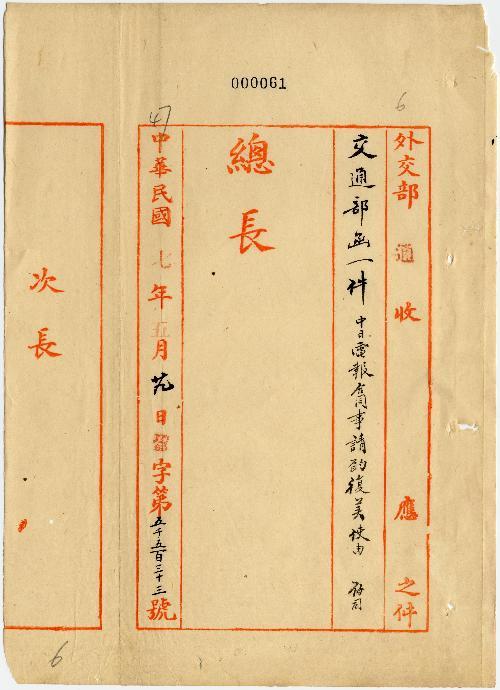 000061
6
外交部 通 收 應 之件
交通部函一件 中日電報合同事請酌復美使由
總長
47
中華民國七年五月廿九日 字第五千五百三十三號
次長
6